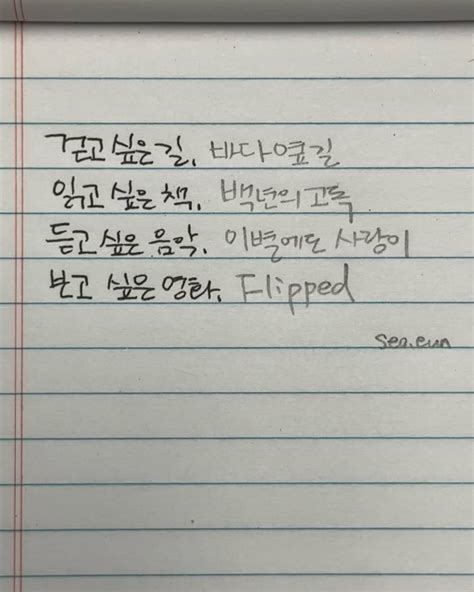 걷고 싶은 길, 바다 옆길
읽고 싶은 책, 백년의 고독
듣고 싶은 음악, 이별에도 사랑이
보고 싶은 영화, Flipped
seo.eun